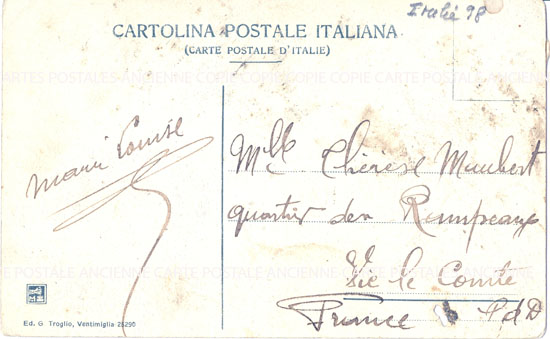 Italie 98
CARTOLINA POSTALE ITALIANA
(CARTE POSTALE D'ITALIE)
CARTES POSTALES ANCIENNE COPIE COPIE COPIE COPIE CARTES POSTALES ANCIENNE
Marie Louise
Mlle Thérèse Maubert
quartier des Rampeaux
Vic le Comte
France P d D
CARTE POSTALE ANCIENNE CARTE POSTALE ANCIENNE
Ed. G Troglio, Ventimiglia 26290